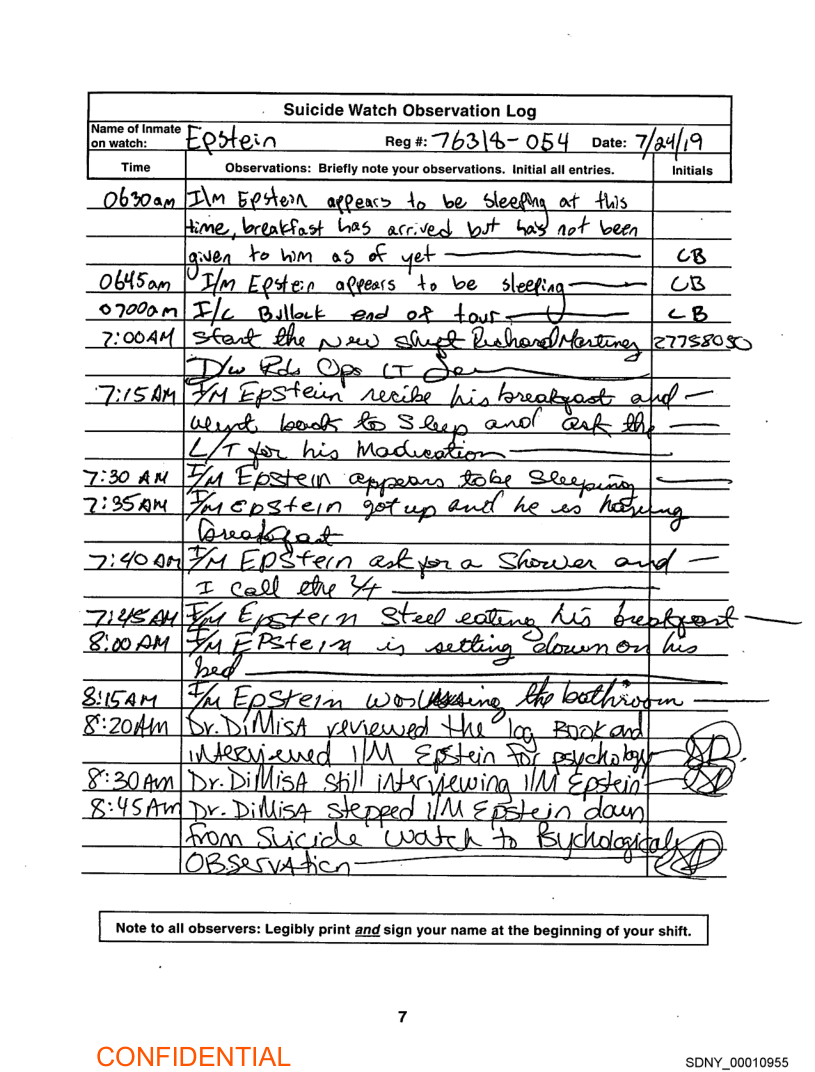 Suicide Watch Observation Log
Name of Inmate on watch: Epstein Reg #: 76318-054 Date: 7/24/19
Time Observations: Briefly note your observations. Initial all entries. Initials
0630am I\M Epstein appears to be sleeping at this
time, breakfast has arrived but has not been
given to him as of yet CB
0645am I/M Epstein appears to be sleeping CB
0700am I/C Bullock end of tour CB
7:00AM start the New shift Richard Martinez 27758050
Rds Ops LT
7:15AM I/M EPStein recibe his breakfast and
weynt back to Sleep and ask the
L/T for his Madication
7:30 AM I/M EPStein appears to be Sleeping
7:35AM I/M EPStein got up and he is having
breakfast
7:40AM I/M EPStein ask for a Shower and
I call the L/t
7:45AM I/M Epstein Steel eating his breakfast
8:00AM I/M EPStein is setting down on his
bed
8:15AM I/M EpStein was using the bathroom
8:20Am Dr. DiMisA reviewed the log Book and
interviewed I/M Epstein for psychology
8:30Am Dr. DiMisA still interviewing I/M Epstein
8:45Am Dr. DiMisA stepped I/M Epstein down
from Suicide watch to Psychological
OBservAtion
Note to all observers: Legibly print and sign your name at the beginning of your shift.
7
CONFIDENTIAL
SDNY_00010955